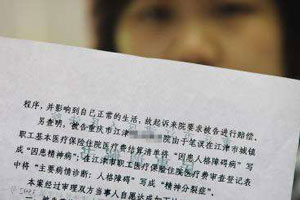 程序，并影响到自己正常的生活，故起诉来院要求被告进行赔偿。
另查明，被告重庆市江津
院由于笔误在江津市城镇
职工基本医疗保险住院医疗费结算清单将“因患人格障碍病”写
成“因患精神病”，在江津市职工医疗保险住院医疗费审查登记表
中将“主要病情诊断：人格障碍”写成“精神分裂症”。
本案经过审理双方当事人自愿达成如下